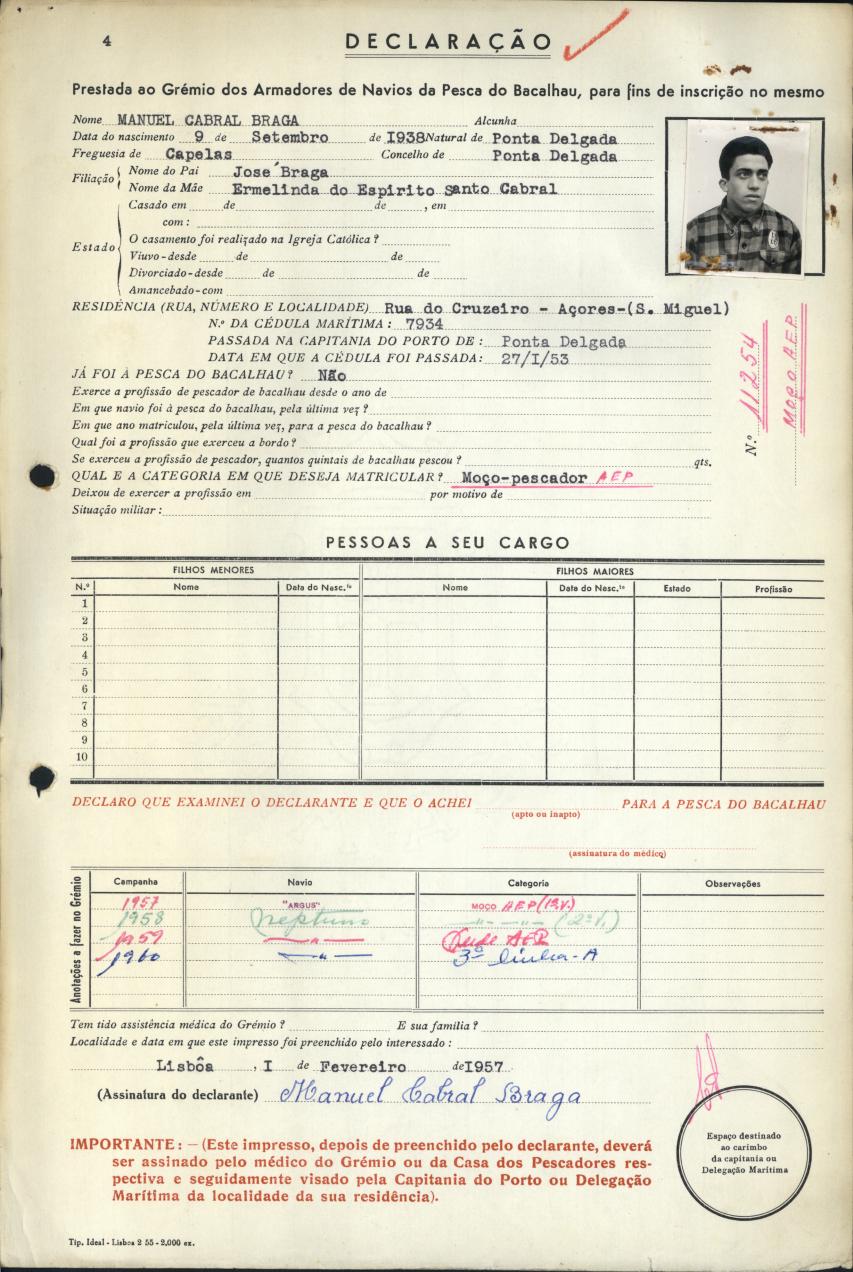 4
DECLARAÇÃO
Prestada ao Grémio dos Armadores de Navios da Pesca do Bacalhau, para fins de inscrição no mesmo
Nome MANUEL CABRAL BRAGA Alcunha
Data do nascimento 9 de Setembro de I938 Natural de Ponta Delgada
Freguesia de Capelas Concelho de Ponta Delgada
Filiação
Nome do Pai José Braga
Nome da Mãe Ermelinda do Espirito Santo Cabral
Estado
Casado em de de , em
com :
O casamento foi realizado na Igreja Católica ?
Viuvo-desde de de
Divorciado-desde de de
Amancebado-com
RESIDÊNCIA (RUA, NÚMERO E LOCALIDADE) Rua do Cruzeiro - Açores-(S. Miguel)
N.º DA CÉDULA MARÍTIMA : 7934
PASSADA NA CAPITANIA DO PORTO DE : Ponta Delgada
DATA EM QUE A CÉDULA FOI PASSADA: 27/I/53
JÁ FOI À PESCA DO BACALHAU ? Não
Exerce a profissão de pescador de bacalhau desde o ano de
Em que navio foi à pesca do bacalhau, pela última vez ?
Em que ano matriculou, pela última vez, para a pesca do bacalhau ?
Qual foi a profissão que exerceu a bordo ?
Se exerceu a profissão de pescador, quantos quintais de bacalhau pescou ? qts.
QUAL E A CATEGORIA EM QUE DESEJA MATRICULAR ? Moço-pescador AEP
Deixou de exercer a profissão em por motivo de
Situação militar :
N.º 11254
Moço AEP
PESSOAS A SEU CARGO
FILHOS MENORES FILHOS MAIORES
N.º Nome Data do Nasc.to Nome Data do Nasc.to Estado Profissão
1
2
3
4
5
6
7
8
9
10
DECLARO QUE EXAMINEI O DECLARANTE E QUE O ACHEI PARA A PESCA DO BACALHAU
(apto ou inapto)
(assinatura do médico)
Anotações a fazer no Grémio
Campanha Navio Categoria Observações
1957 "ARGUS" MOÇO AEP (1ª V.)
1958 Neptuno -"- -"- (2ª V.)
1959 -"- AEP
1960 -"- 3ª linha-A
Tem tido assistência médica do Grémio ? E sua família ?
Localidade e data em que este impresso foi preenchido pelo interessado :
Lisbôa , I de Fevereiro de I957
(Assinatura do declarante) Manuel Cabral Braga
Espaço destinado
ao carimbo
da capitania ou
Delegação Marítima
IMPORTANTE : — (Este impresso, depois de preenchido pelo declarante, deverá
ser assinado pelo médico do Grémio ou da Casa dos Pescadores res-
pectiva e seguidamente visado pela Capitania do Porto ou Delegação
Marítima da localidade da sua residência).
Tip. Ideal - Lisboa 2 55 - 2,000 ex.